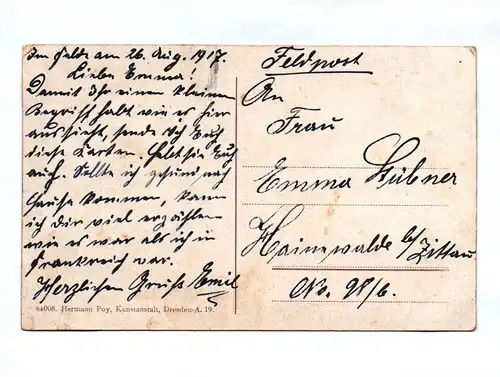 Im Felde am 26. Aug. 1917.
Liebe Emma!
Damit Ihr einen kleinen
Begriff habt wie es hier
aussieht, sende ich Euch
diese Karten. Hebt sie Euch
auch. Sollte ich gesund nach
Hause kommen, kann
ich Dir viel erzählen
wie es war als ich in
Frankreich war.
Herzlichen Gruß Emil
64008. Hermann Poy, Kunstanstalt, Dresden-A. 19.
Feldpost
An
Frau
Emma Hübner
Hainewalde b/Zittau
No. 98/6.